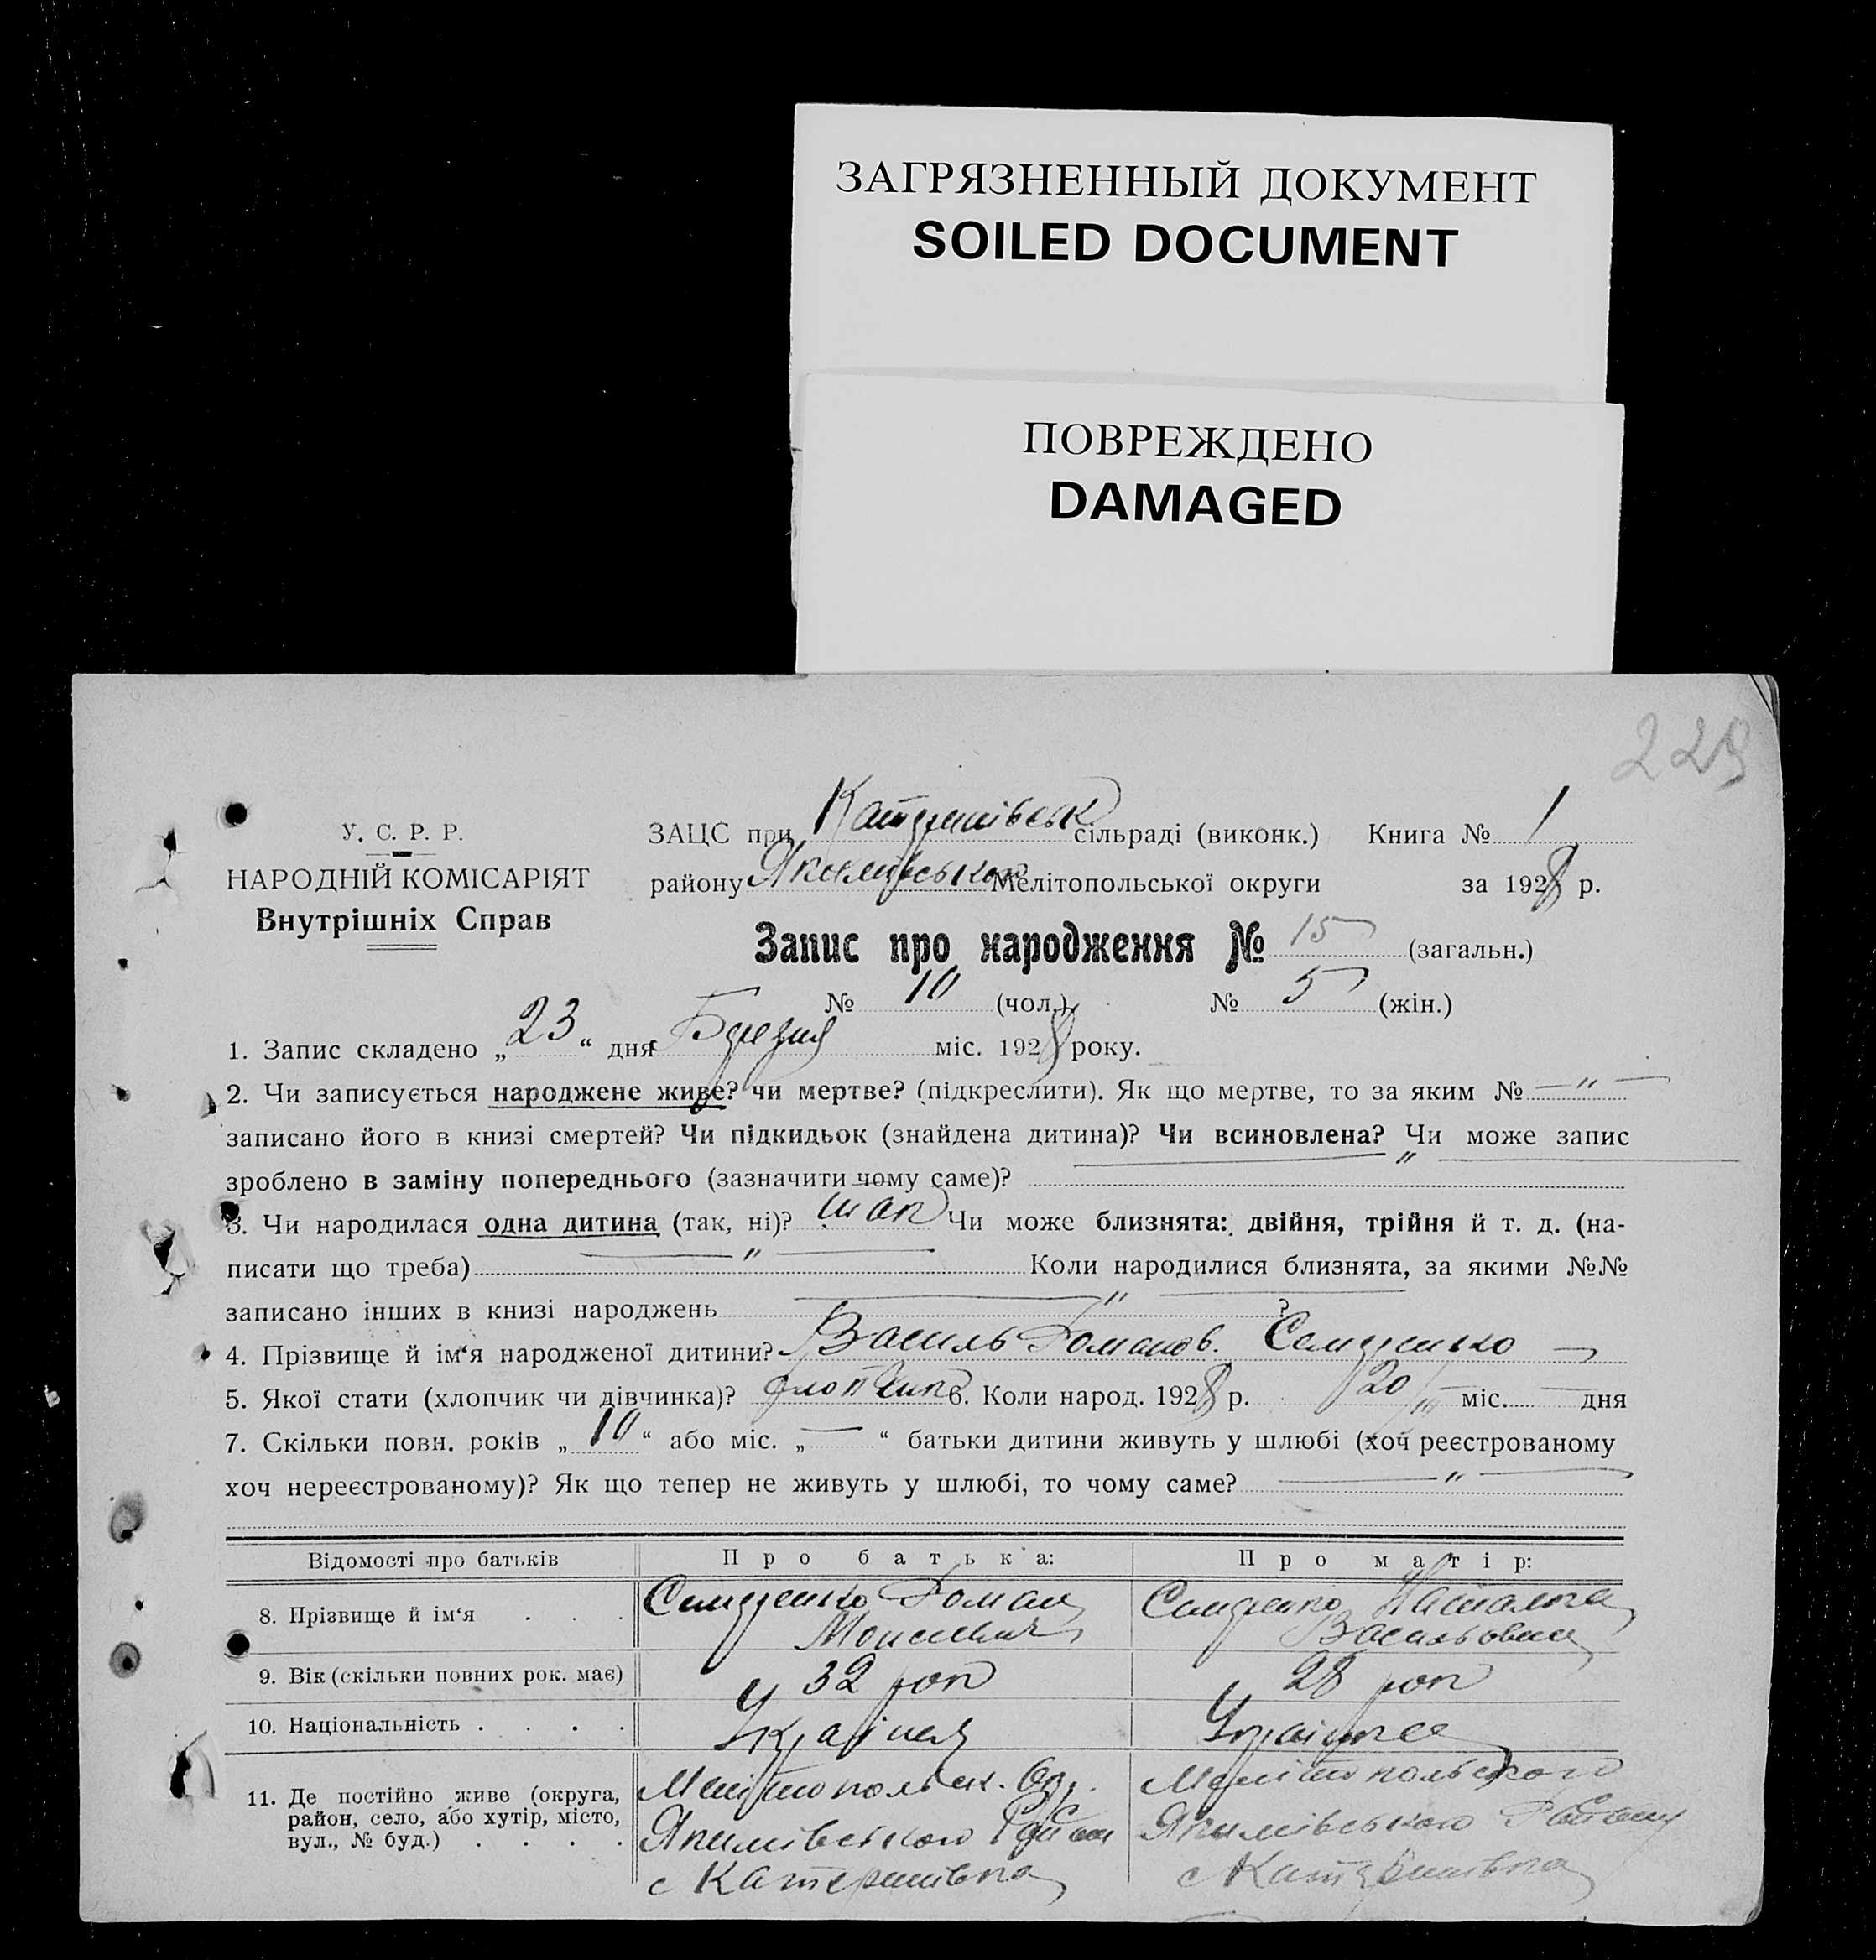 ЗАГРЯЗНЕННЫЙ ДОКУМЕНТ
SOILED DOCUMENT
ПОВРЕЖДЕНО
DAMAGED
229
У. С. Р. Р.
НАРОДНІЙ КОМІСАРІЯТ
Внутрішніх Справ
ЗАЦС при сільраді (виконк.) Книга № 1
району Мелітопольської округи за 1928 р.
Запис про народження № 15 (загальн.)
№ 10 (чол.) № 5 (жін.)
1. Запис складено „23“ дня Березня міс. 1928 року.
2. Чи записується народжене живе? чи мертве? (підкреслити). Як що мертве, то за яким № — „ —
записано його в книзі смертей? Чи підкидьок (знайдена дитина)? Чи всиновлена? Чи може запис
зроблено в заміну попереднього (зазначити чому саме)? — „ —
3. Чи народилася одна дитина (так, ні)? так Чи може близнята: двійня, трійня й т. д. (на-
писати що треба) — „ — Коли народилися близнята, за якими №№
записано інших в книзі народжень — „ — ?
4. Прізвище й ім‘я народженої дитини? Василь Романов.
5. Якої стати (хлопчик чи дівчинка)? хлопчик 6. Коли народ. 1928 р. 20/III міс. — дня
7. Скільки повн. років „10“ або міс. „—“ батьки дитини живуть у шлюбі (хоч реєстрованому
хоч нереєстрованому)? Як що тепер не живуть у шлюбі, то чому саме? — „ —
Відомості про батьків Про батька: Про матір:
8. Прізвище й ім‘я . . . Роман Наталка
Васильовна
9. Вік (скільки повних рок. має) 32 рок 28 рок
10. Національність . . . . Українец Українка
11. Де постійно живе (округа, район, село, або хутір, місто, вул., № буд.) . . . .
Мелітопольск. Окр. Мелітопольського
Якимівського Район Якимівського Району
с Катеринівка с Катеринівка